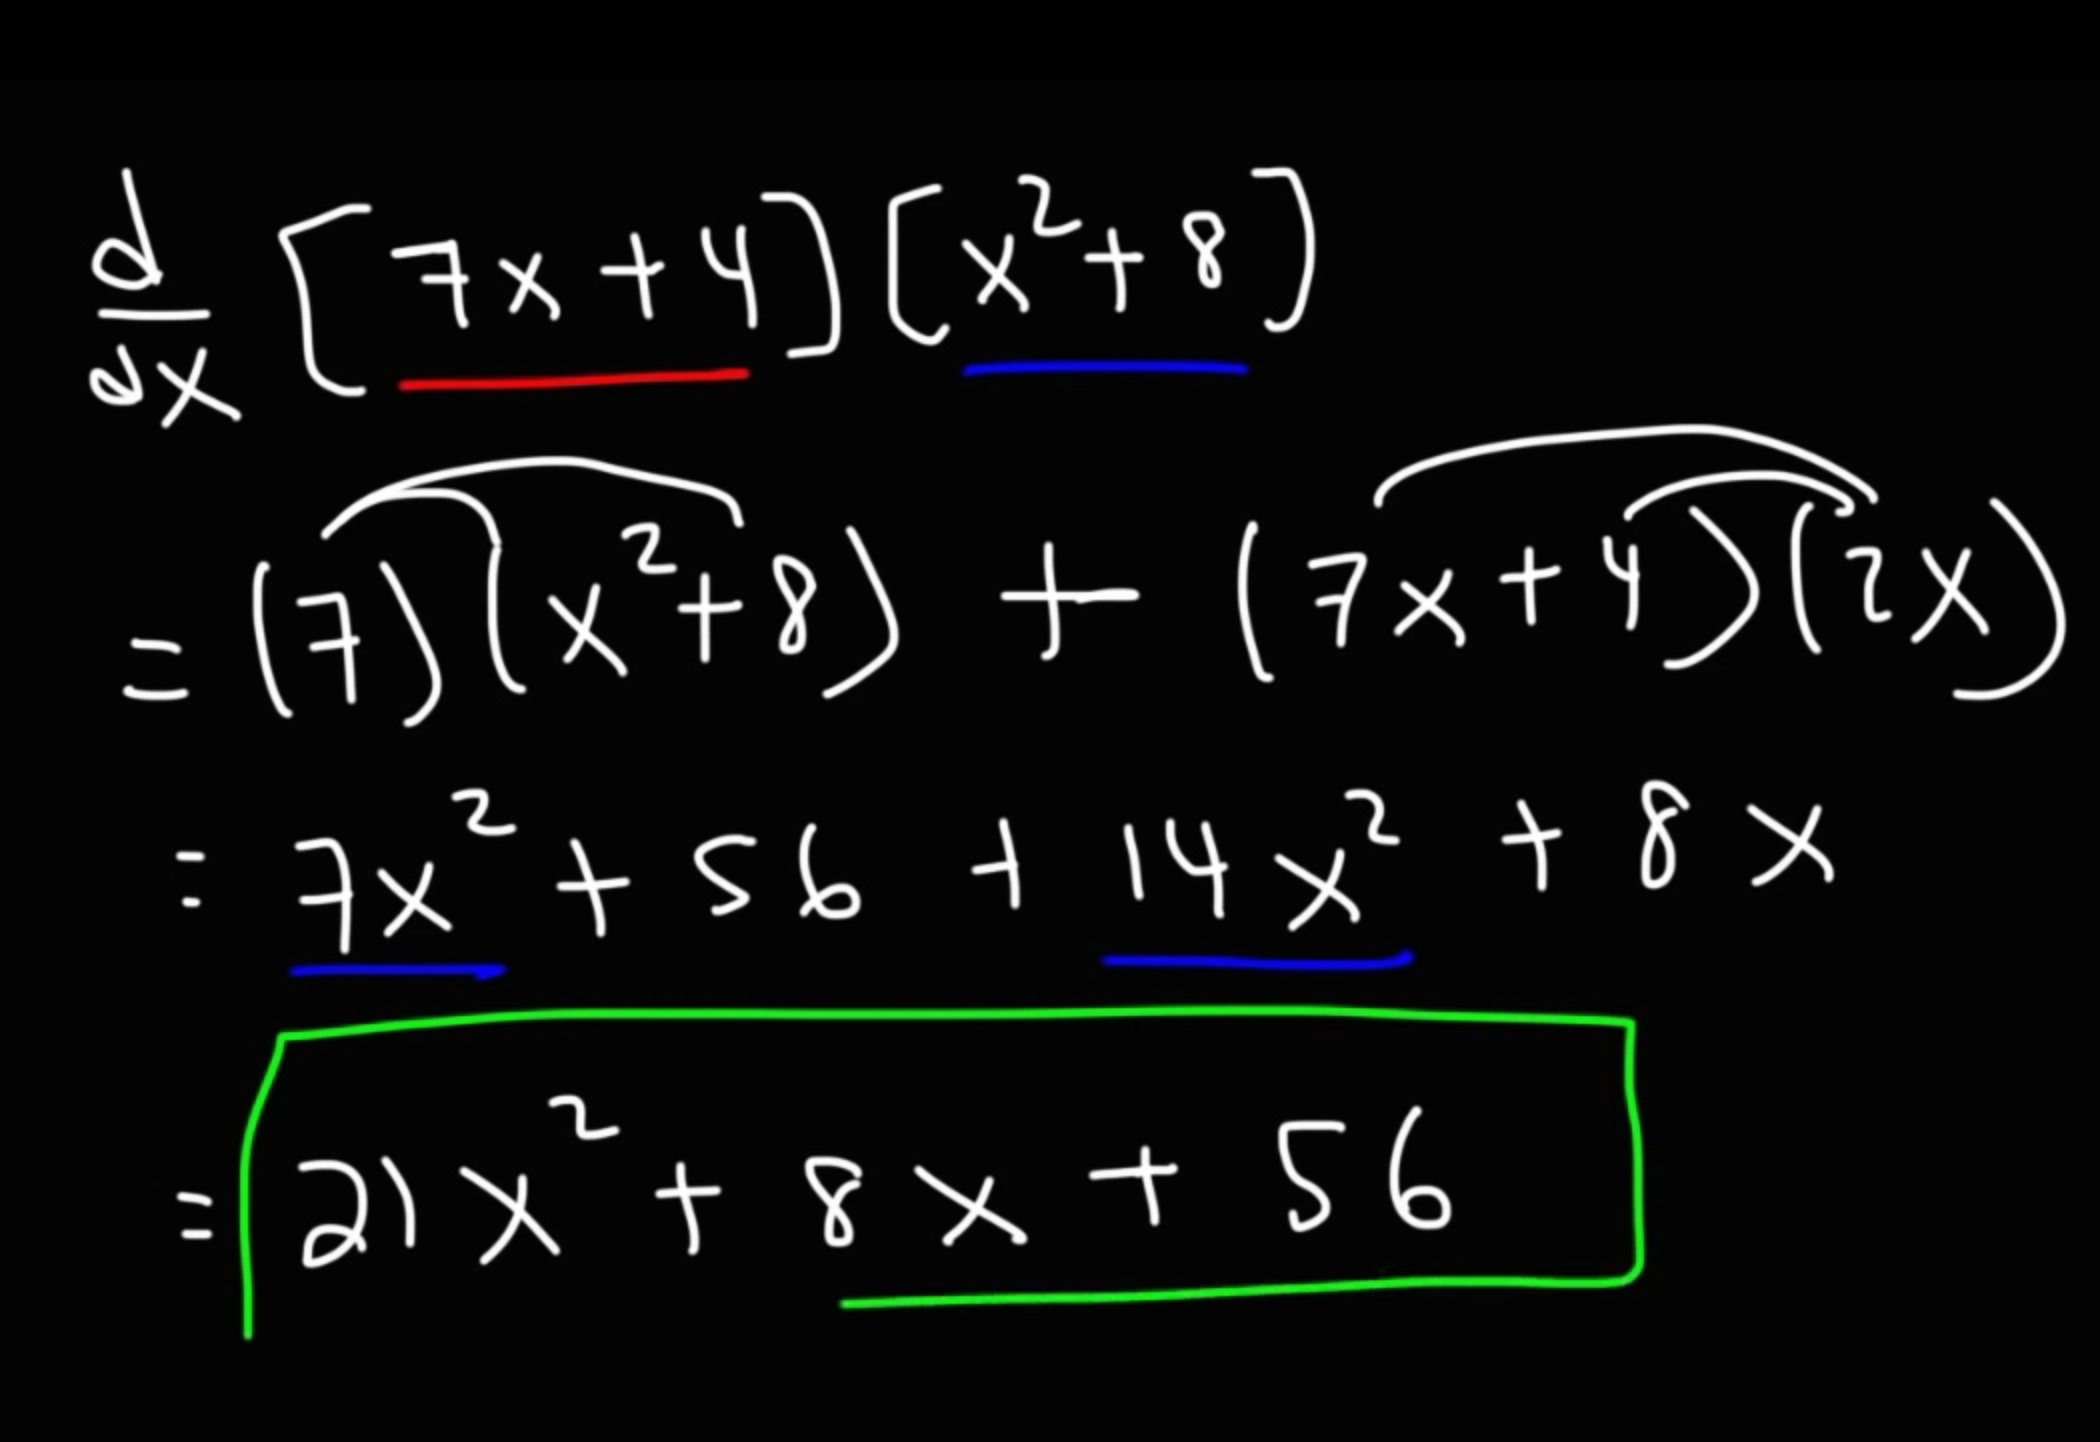 d/dx [7x+4][x²+8]
= (7)(x²+8) + (7x+4)(2x)
= 7x² + 56 + 14x² + 8x
= 21x² + 8x + 56